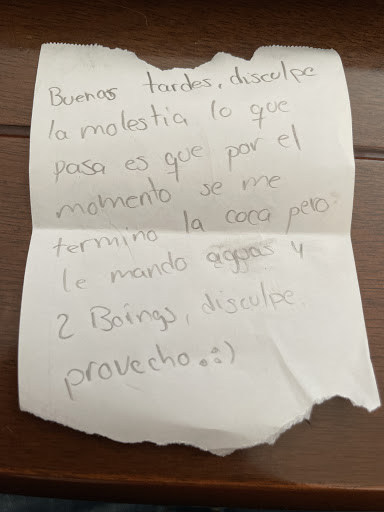 Buenas tardes, disculpe
la molestia lo que
pasa es que por el
momento se me
termino la coca pero
le mando aguas y
2 Boings, disculpe.
provecho.:)